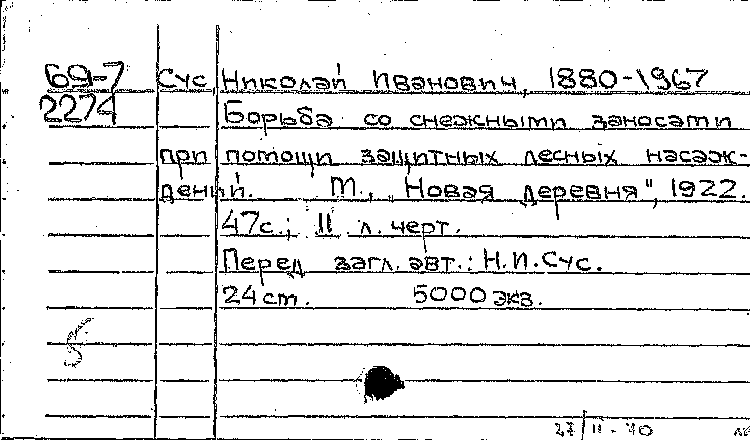 69-7 Сус, Николай Иванович, 1880-1967
2274 Борьба со снежными заносами
при помощи защитных лесных насаж-
дений. М., "Новая деревня", 1922.
47с.; II л. черт.
Перед загл. авт.: Н.И.Сус.
24 см. 5000 экз.
5
27/II-70